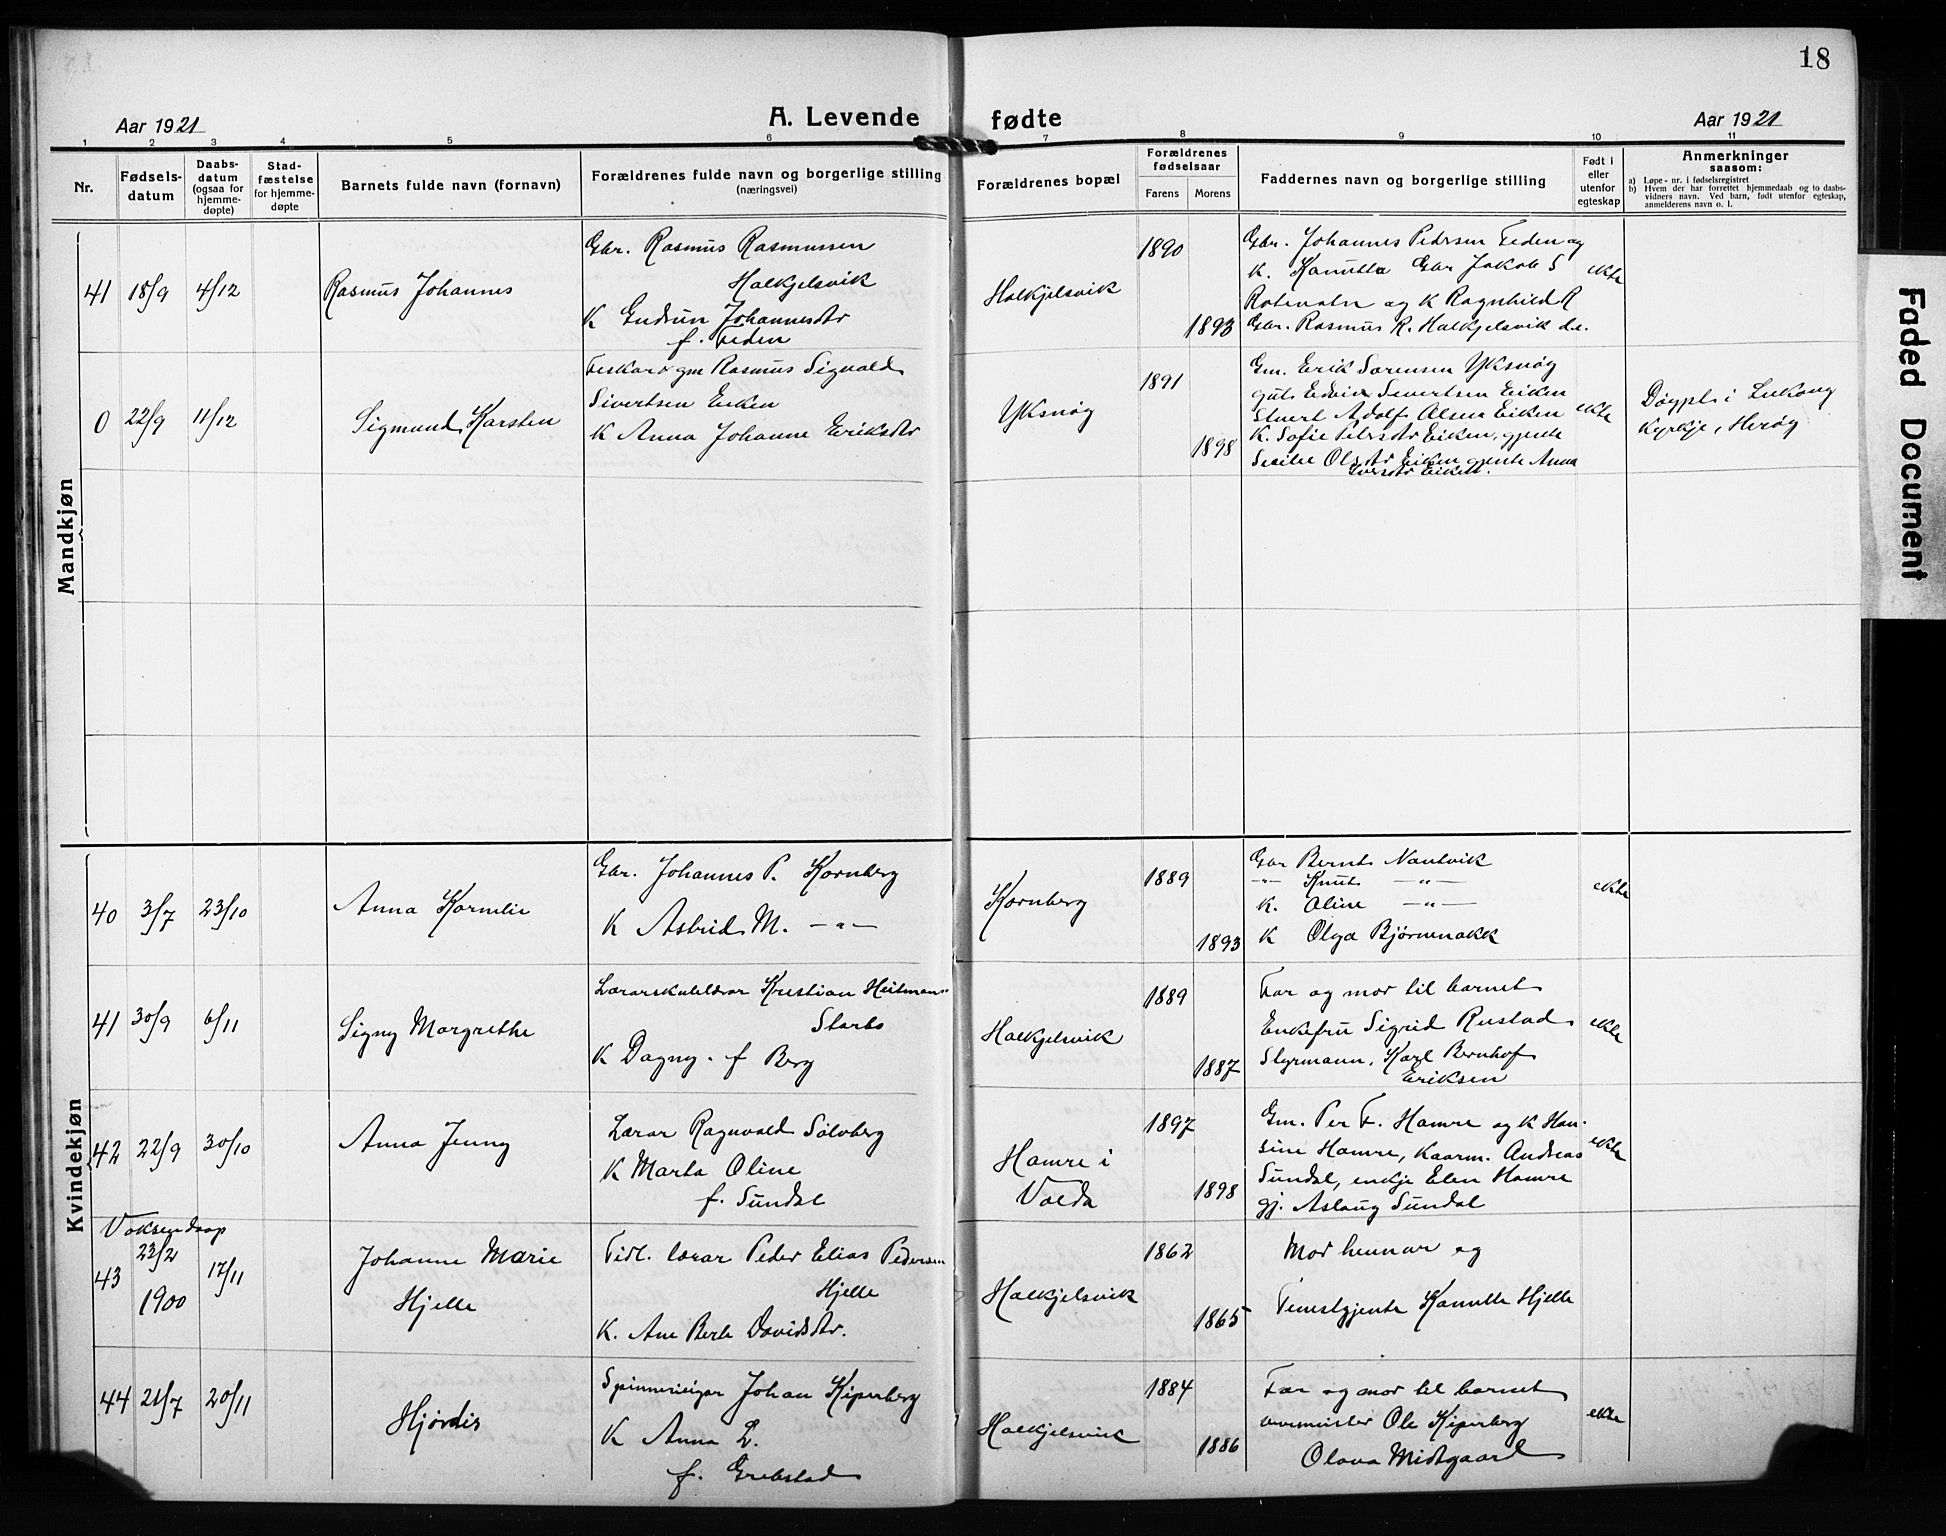 18
Aar 1921
A. Levende fødte
Aar 1921
1 2 3 4 5 6 7 8 9 10 11
Nr.
Fødsels-
datum
Daabs-
datum
(ogsaa for
hjemme-
døpte)
Stad-
fæstelse
for hjemme-
døpte
Barnets fulde navn (fornavn)
Forældrenes fulde navn og borgerlige stilling
(næringsvei)
Forældrenes bopæl
Forældrenes
fødselsaar
Farens
Morens
Faddernes navn og borgerlige stilling
Født i
eller
utenfor
egteskap
Anmerkninger
saasom:
a) Løpe-nr. i fødselsregistret
b) Hvem der har forrettet hjemmedaab og to daabs-
vidners navn. Ved barn, født utenfor egteskap,
anmelderens navn o. l.
Mandkjøn
41 18/9 4/12
Rasmus Johannes
Gbr. Rasmus Rasmussen
Halkjelsvik
K Gudrun Johannesdtr
f. Feden
Halkjelsvik
1890
1893
Gbr. Johannes Pedersen Feden og
K. Kanutta Gbr Jakob S
og K Ragnhild R
Gbr. Rasmus R. Halkjelsvik d.e.
ekte
0 22/9 11/12
Sigmund Karsten
Feskar o gm Rasmus Sigvald
Sivertsen Eiken
K Anna Johanne Eriksdtr
Yksnøy
1891
1898
Gm. Erik Sørensen Yksnøy
gut Edvin Sivertsen Eiken
Adolf Olsen Eiken
K. Sofie Petersdtr Eiken, gjente
Olsdtr Eiken gjente Anna
Eiken.
ekte
Døypt i Leikong
kyrkje, Herøy
Kvindekjøn
40 3/7 23/10
Anna Kornelie
Gbr. Johannes P. Kornberg
K Astrid M. —"—
Kornberg
1889
1893
Gbr Bernt Nautvik
-"- Knut —"—
K. Oline —"—
K Olga Bjørnenakk
ekte
41 30/9 6/11
Signy Margrethe
Lærarskulelærar Kristian Heitman
Starbo
K Dagny. f Berg
Halkjelsvik
1889
1887
Far og mor til barnet
Enkefru Sigrid Rustad
Styrmann, Karl Bernhof
Eriksen
ekte
42 22/9 30/10
Anna Jenny
Lærar Ragnvald Sølvberg
K Marta Oline
f. Sundal
Hamre i
Volda
1897
1898
Gm. Per F. Hamre og K Han-
sine Hamre, Kaarm. Andreas
Sundal, enkje Elen Hamre
gj. Aslaug Sundal
ekte
Voksendaap
43 23/2
1900
17/11
Johanne Marie
Hjelle
Fidl. lærar Peder Elias Pedersen
Hjelle
K. Ane Berte Davidsdtr.
Halkjelsvik
1862
1865
Mor hennar og
Tenestgjente Kanutte Hjelle
44 21/7 20/11
Hjørdis
Spinnerieigar Johan Kiperberg
K Anna L.
f. Grebstad
Halkjelsvik
1884
1886
Far og mor til barnet
Ole Kiperberg
Olava Midtgaard
ekte
Faded Document